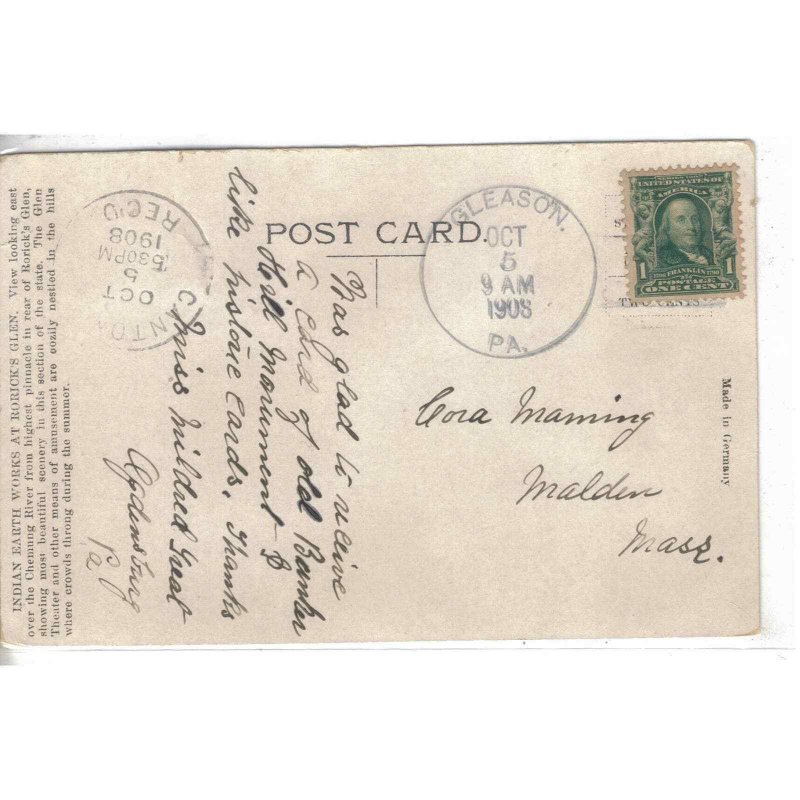 INDIAN EARTH WORKS AT RORICK'S GLEN. View looking east
over the Chemung River from highest pinnacle in rear of Rorick's Glen,
showing most beautiful scenery in this section of the state. The Glen
Theater and other means of amusement are cozily nestled in the hills
where crowds throng during the summer.
POST CARD.
REC'D
OCT
5
530PM
1908
GLEASON.
OCT
5
9 AM
1908
PA.
UNITED STATES OF
AMERICA
1706 FRANKLIN 1790
1 1
POSTAGE
ONE CENT
Was glad to receive
a card of old Bunker
Hill Monument &
like historic cards. Thanks
Miss Mildred
Pa
Cora Manning
Malden
Mass.
Made in Germany